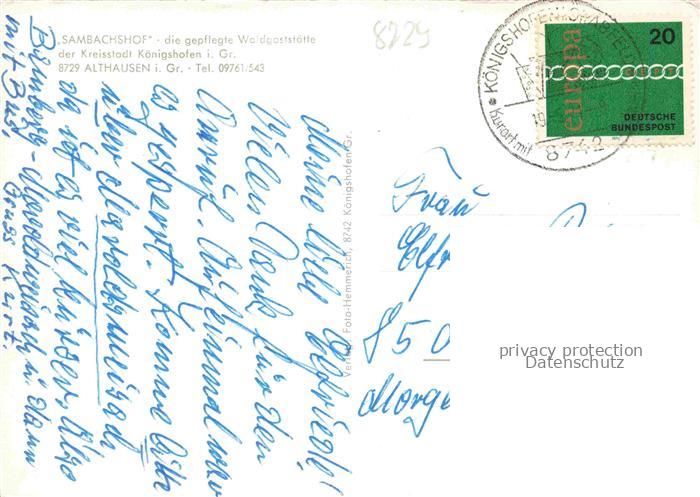 „SAMBACHSHOF" - die gepflegte Waldgaststätte
der Kreisstadt Königshofen i. Gr.
8729 ALTHAUSEN i. Gr. - Tel. 09761/543
8729
KÖNIGSHOFEN i. GRABFELD
Kurort mit
8742
europa
20
DEUTSCHE
BUNDESPOST
Meine liebe Elfriede!
Vielen Dank für den
Anruf. Auf einmal war
es gesperrt. Komme bitte
über Maroldsweisach
da ist es viel kürzer. Also
Bamberg - Maroldsweisach u. dann
mit Bus,
Gruss Kurt.
Verlag: Foto-Hemmerich, 8742 Königshofen Gr.
Frau
Elfr
850
privacy protection
Datenschutz